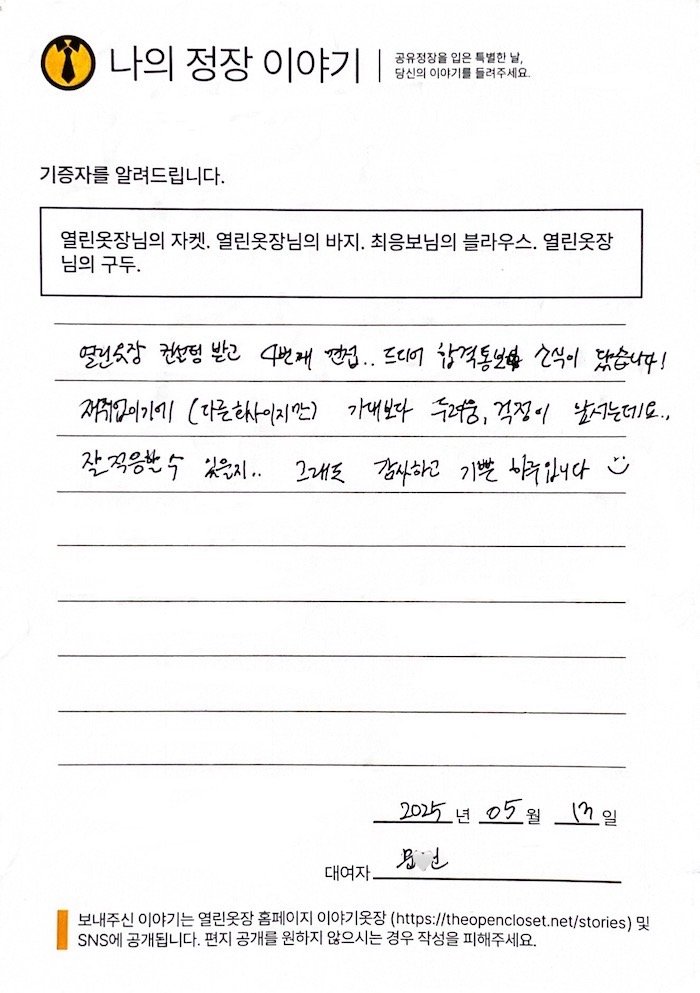 나의 정장 이야기
공유정장을 입은 특별한 날,
당신의 이야기를 들려주세요.
기증자를 알려드립니다.
열린옷장님의 자켓. 열린옷장님의 바지. 최응보님의 블라우스. 열린옷장
님의 구두.
열린옷장 컨설팅 받고 4번째 면접.. 드디어 합격통보 소식이 왔습니다!
재취업이기에 (다른회사이지만) 기대보다 두려움, 걱정이 앞서는데요..
잘 적응할 수 있을지.. 그래도 감사하고 기쁜 하루입니다
2025 년 05 월 13 일
대여자
보내주신 이야기는 열린옷장 홈페이지 이야기옷장 (https://theopencloset.net/stories) 및
SNS에 공개됩니다. 편지 공개를 원하지 않으시는 경우 작성을 피해주세요.